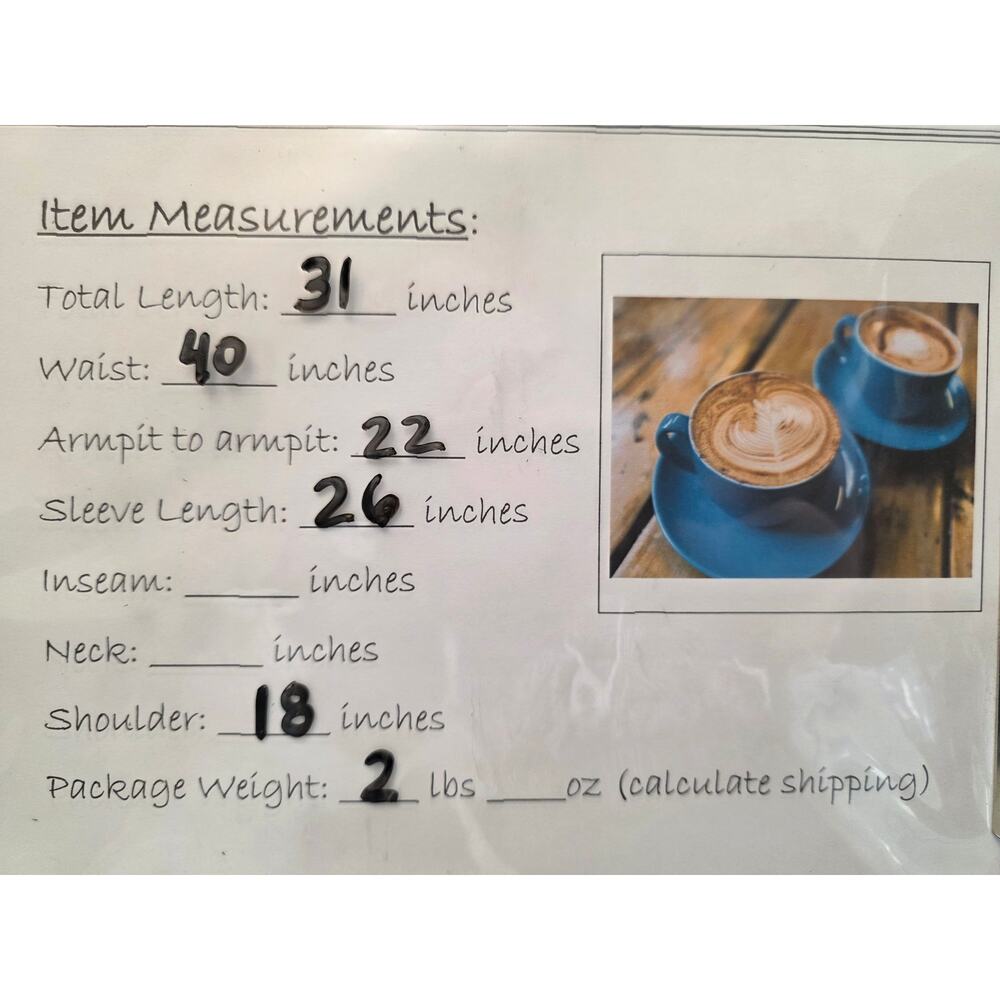 Item Measurements:
Total Length: 31 inches
Waist: 40 inches
Armpit to armpit: 22 inches
Sleeve Length: 26 inches
Inseam: ______ inches
Neck: ______ inches
Shoulder: 18 inches
Package Weight: 2 lbs ____oz (calculate shipping)